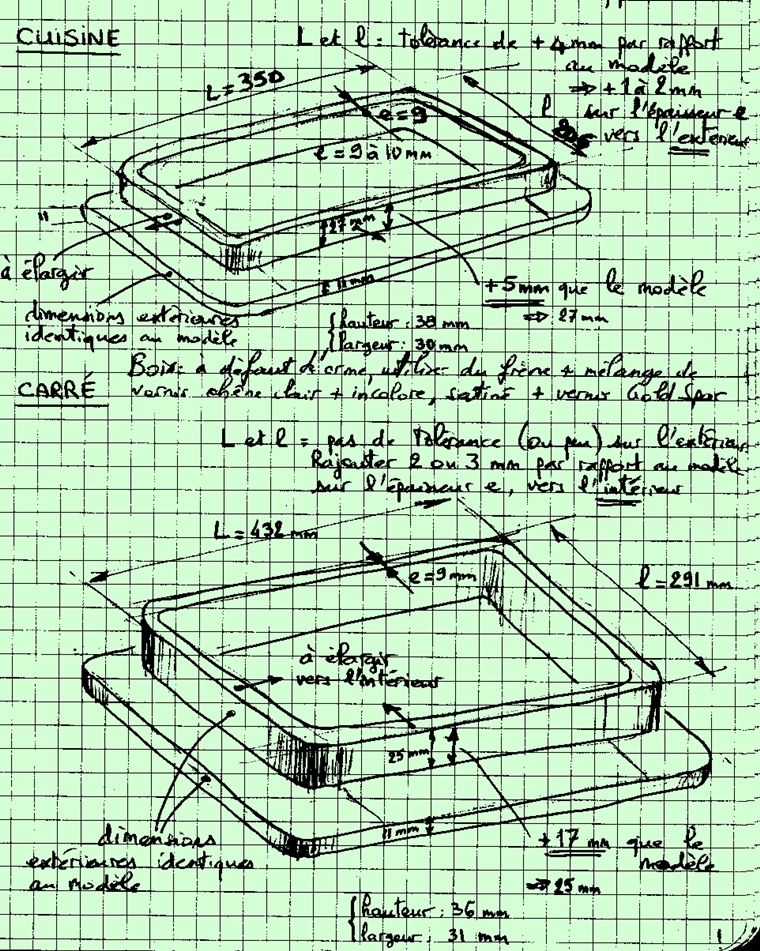 CUISINE
L et l = tolérance de + 4mm par rapport
au modèle
⇒ + 1 à 2 mm
sur l'épaisseur e
vers l'extérieur
L = 350
l
e = 9
e = 9 à 10 mm
27 mm
11 mm
à élargir
+ 5 mm que le modèle
⇒ 27 mm
dimensions extérieures
identiques au modèle
hauteur : 38 mm
largeur : 30 mm
Bois : à défaut d'orme, utiliser du frêne + mélange de
vernis chêne clair + incolore, satiné + vernis Gold Spar
CARRÉ
L et l = pas de tolérance (ou peu) sur l'extérieur
Rajouter 2 ou 3 mm par rapport au modèle
sur l'épaisseur e, vers l'intérieur
L = 432 mm
e = 9 mm
l = 291 mm
à élargir
vers l'intérieur
25 mm
11 mm
dimensions
extérieures identiques
au modèle
+ 17 mm que le
modèle
⇒ 25 mm
hauteur : 36 mm
largeur : 31 mm
1